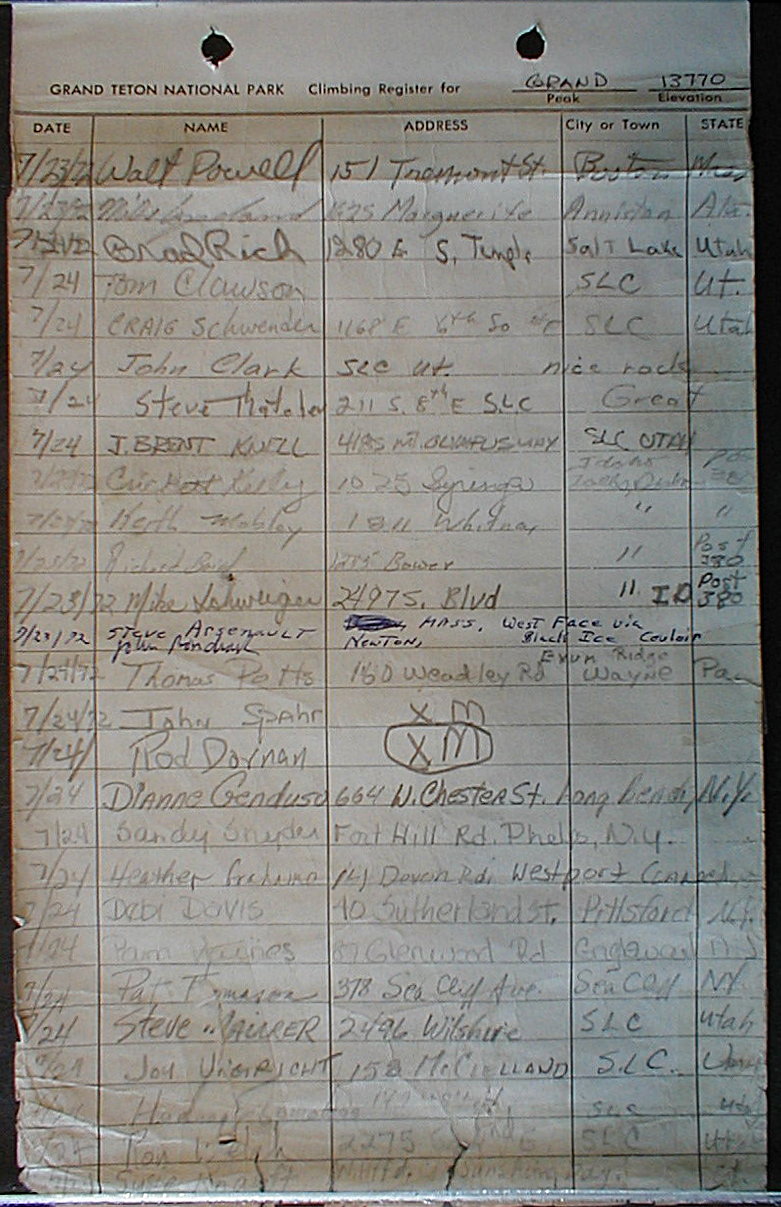 GRAND TETON NATIONAL PARK Climbing Register for GRAND 13770
Peak Elevation
DATE NAME ADDRESS City or Town STATE
7/23/72 Walt Powell 151 Tremont St. Boston Mass
7/23/72 Mike 1425 Marguerite Anniston Ala.
Brad Rich 1280 E S. Temple Salt Lake Utah
7/24 Tom Clawson SLC Ut.
7/24 CRAIG Schwender 1168 E 6th So SLC Utah
7/24 John Clark SLC Ut. nice rock
7/24 Steve Thatcher 211 S. 8th E SLC Great
7/24 J. BRENT KNELL 4185 MT. OLYMPUS WAY SLC UTAH
Kelly 1025 Syringa Idaho Falls, Post 380
Keith Mobley 1811 Whitney " "
Richard Bower " Post 380
7/23/72 Mike 2497 S. Blvd " ID Post 380
7/23/72 Steve Arsenault MASS. West Face via
John NEWTON, Black Ice Couloir
Exum Ridge
7/24/72 Thomas Potts 160 Weadley Rd Wayne Pa
7/24/72 John Spahr XM
7/24/ Rod Dornan XM
7/24 Dianne Genduso 664 W. Chester St. Long Beach, N.Y.
7/24 Sandy Snyder Fort Hill Rd. Phelps, N.Y.
7/24 Heather Grahame 141 Devon Rd. Westport
7/24 Debi Davis 40 Sutherland St. Pittsford N.Y.
7/24 Pam 87 Glenwood Rd Englewood N.J.
7/24 Pat 378 Sea Cliff Ave. Sea Cliff NY.
7/24 Steve 2496 Wilshire SLC Utah
7/24 Jon 158 McCLELLAND S.L.C.
SLC Utah
7/24 Ron Welch 2275 SLC Utah